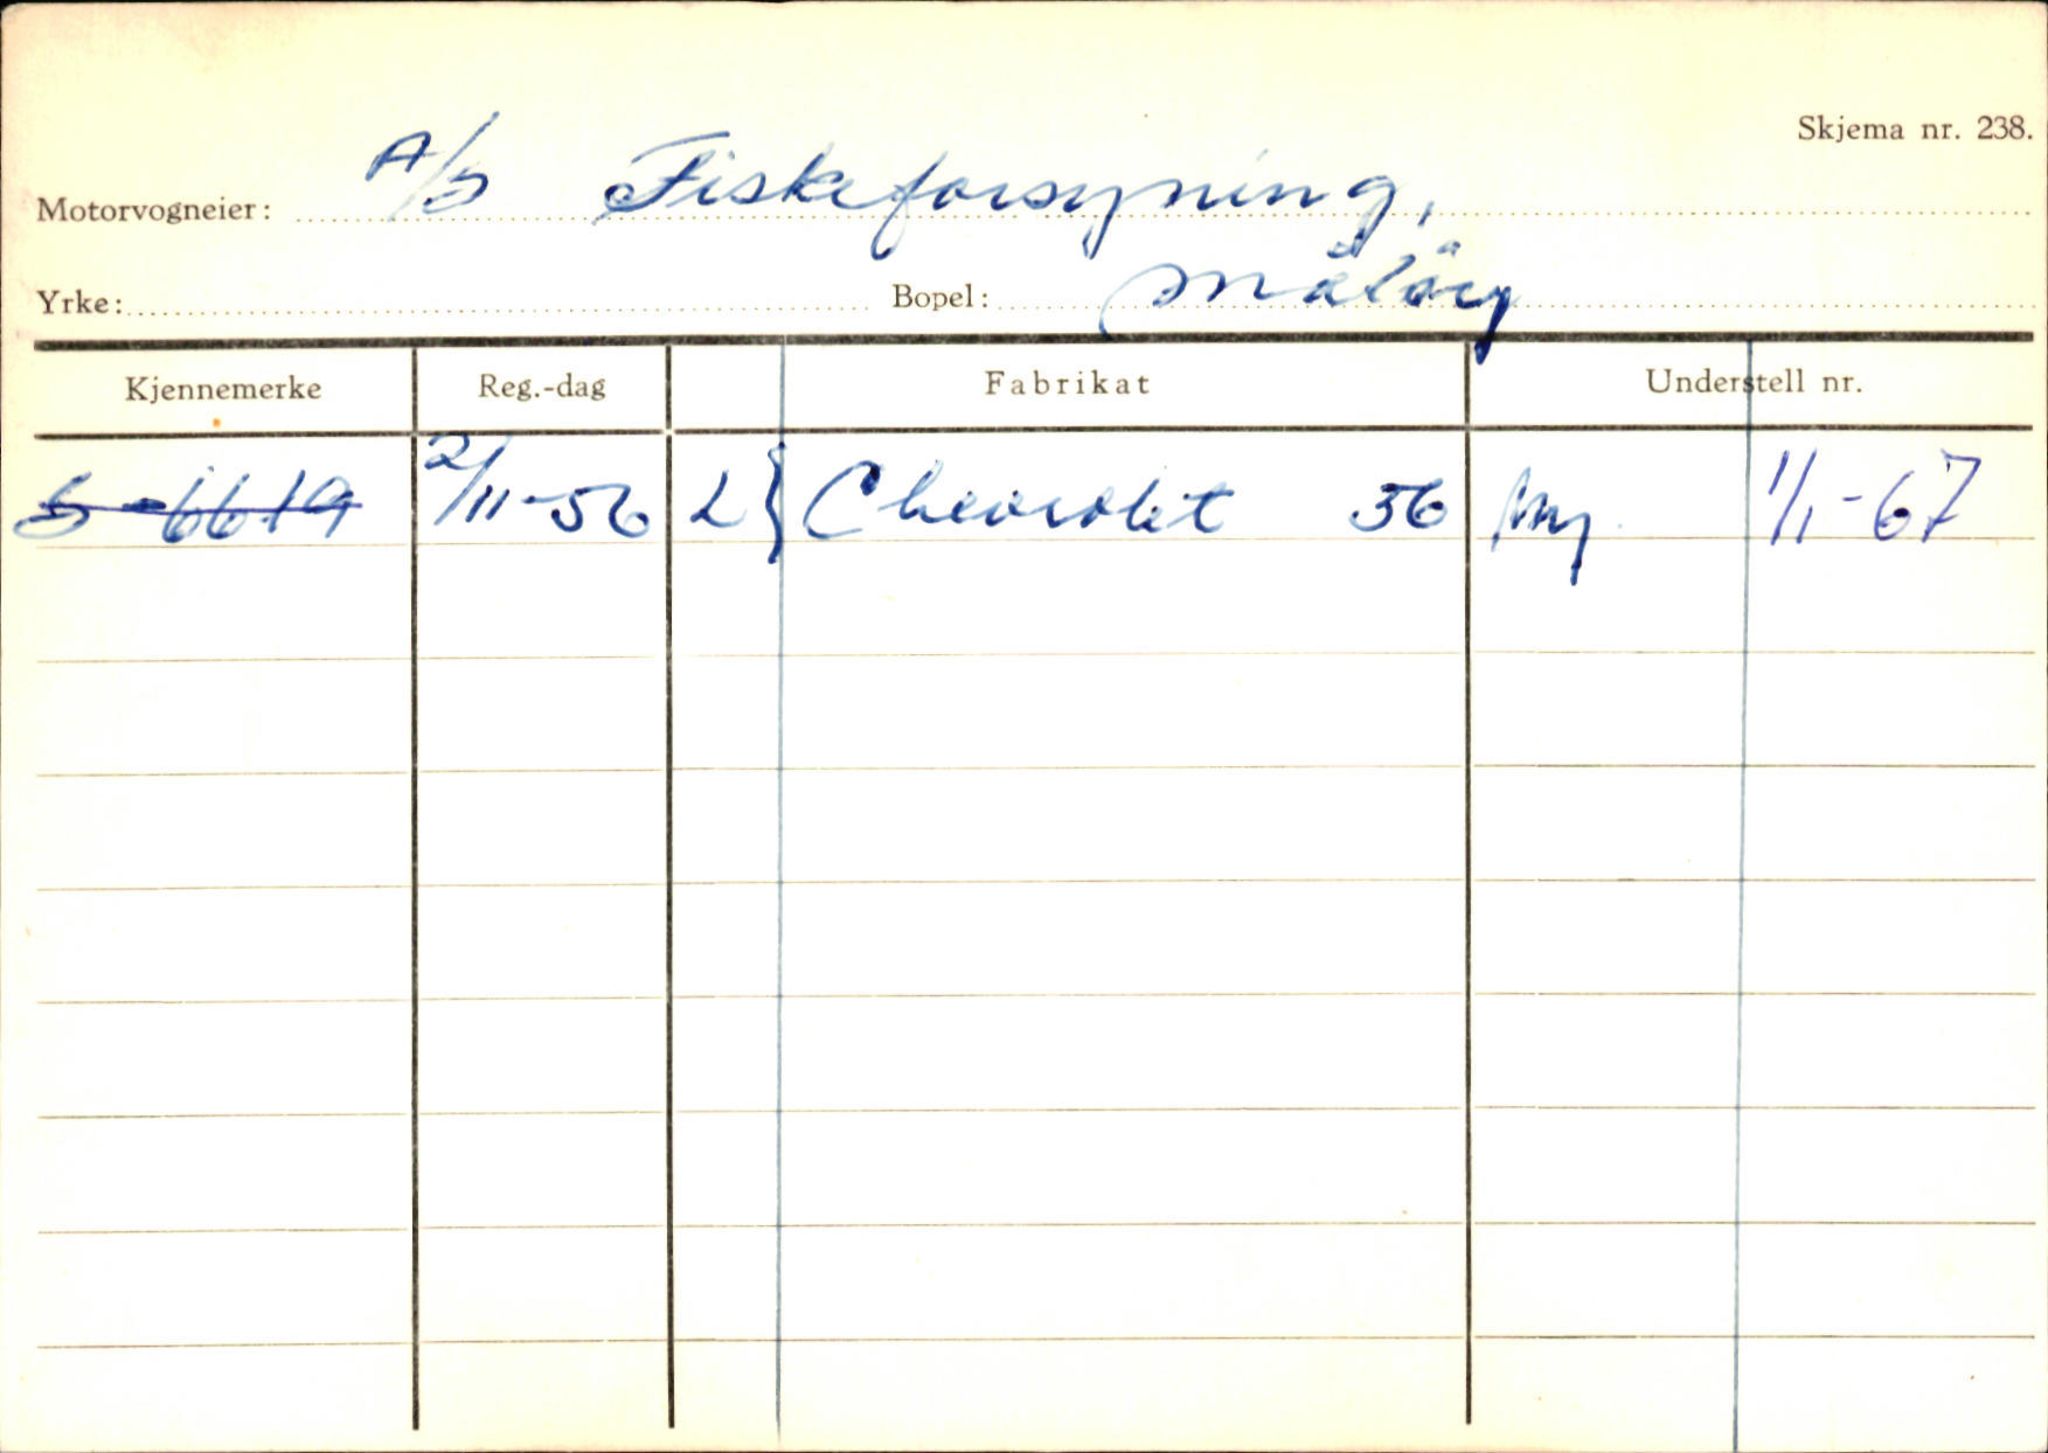 Skjema nr. 238.
Motorvogneier: A/S Fiskeforsyning,
Yrke: Bopel: Målöy
Kjennemerke Reg.-dag Fabrikat Understell nr.
S-6619 2/11-56 L } Chevrolet 56 Ny 1/1-67